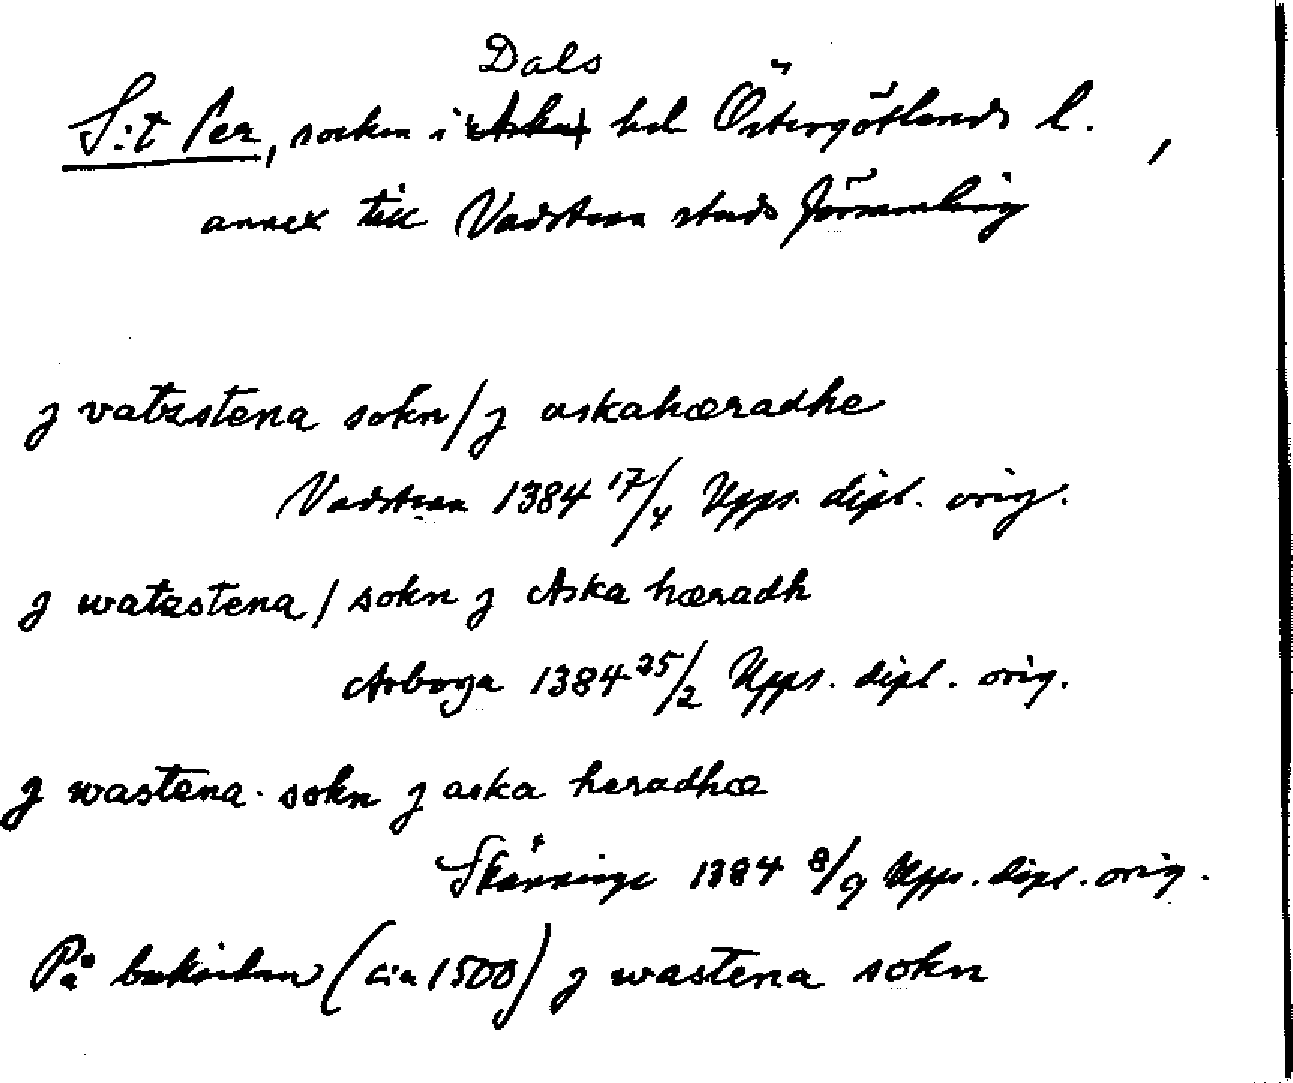 Dals
S:t Per, socken i Aska hd Östergötlands l.,
annex till Vadstena stads församling
j vatzstena sokn/j askahæradhe
Vadstena 1384 17/4 Upps. dipl. orig.
j watzstena/sokn j Aska hæradh
Arboga 1384 25/2 Upps. dipl. orig.
j wastena. sokn j aska heradhæ
Skänninge 1384 8/9 Upps. dipl. orig.
På baksidan (cia 1500) j wastena sokn